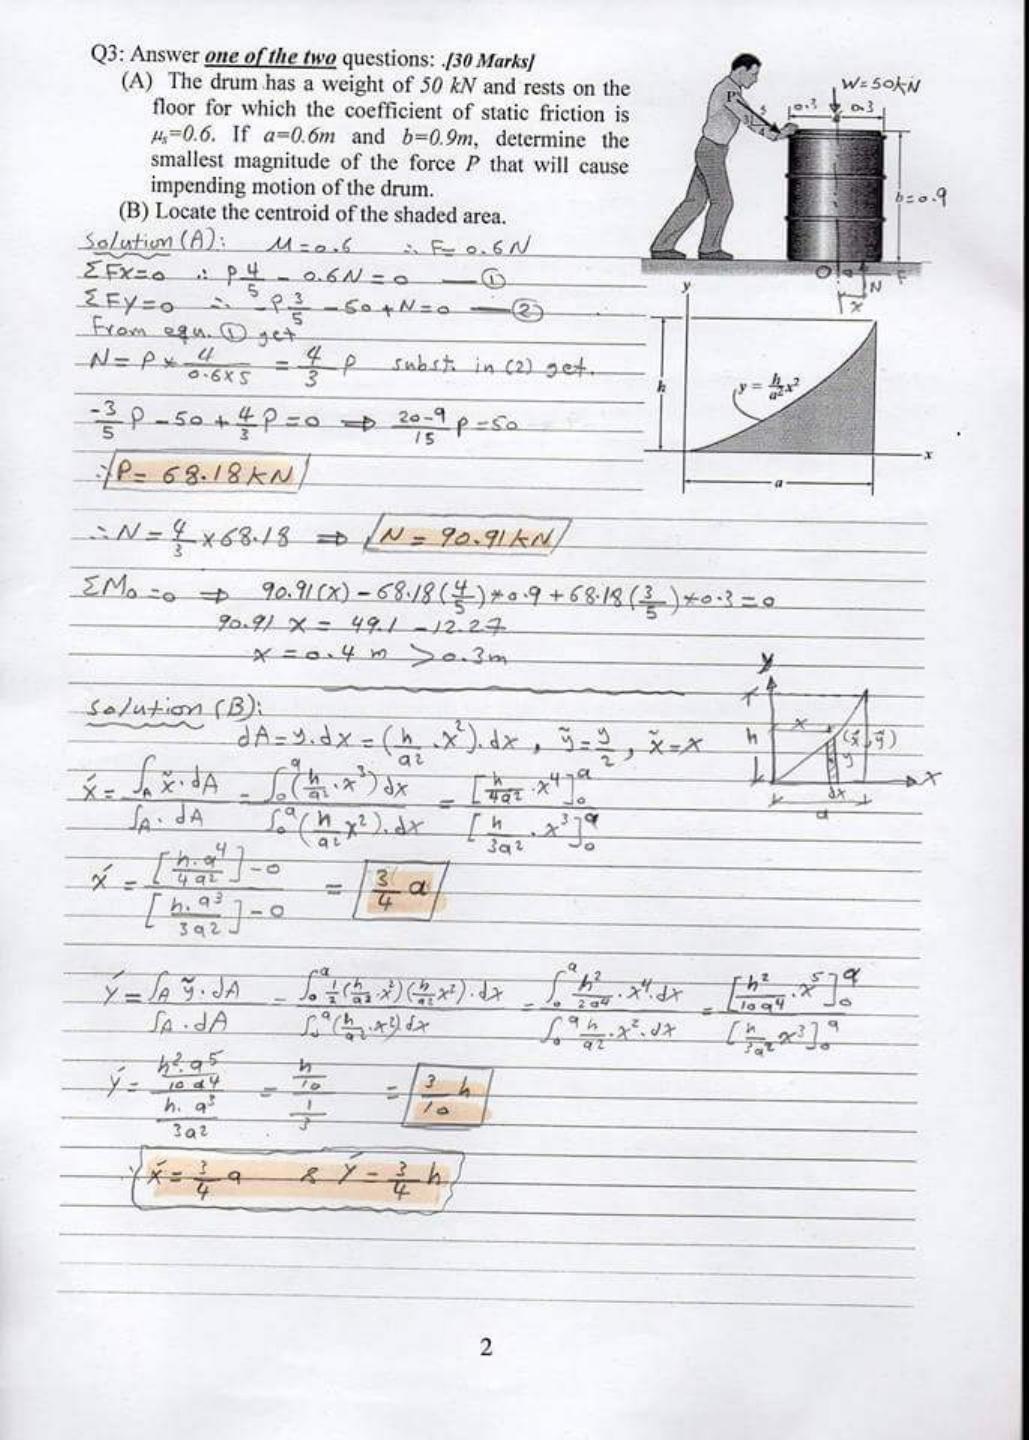 Q3: Answer one of the two questions: .[30 Marks]
(A) The drum has a weight of 50 kN and rests on the
floor for which the coefficient of static friction is
μs=0.6. If a=0.6m and b=0.9m, determine the
smallest magnitude of the force P that will cause
impending motion of the drum.
(B) Locate the centroid of the shaded area.
W=50kN
P
5
3
4
0.3
0.3
b=0.9
O
N
F
x
Solution (A): M=0.6 ∴ F= 0.6N
ΣFx=0 ∴ P 4/5 - 0.6N = 0 — ①
ΣFy=0 ∴ -P 3/5 - 50 + N = 0 — ②
From equ. ① get
N = P * 4/(0.6x5) = 4/3 P subst. in (2) get.
-3/5 P - 50 + 4/3 P = 0 ⇒ (20-9)/15 P = 50
∴ P = 68.18 kN
∴ N = 4/3 x 68.18 ⇒ N = 90.91 kN
ΣMo = 0 ⇒ 90.91(x) - 68.18(4/5)*0.9 + 68.18(3/5)*0.3 = 0
90.91 x = 49.1 - 12.27
x = 0.4 m > 0.3m
y
h
y = h/a² x²
x
a
Solution (B):
dA = y.dx = (h/a² . x²).dx , ỹ = y/2 , x̃ = x
x́ = ∫A x̃.dA / ∫A.dA = ∫₀ᵃ(h/a².x³)dx / ∫₀ᵃ(h/a² x²).dx = [h/4a² . x⁴]₀ᵃ / [h/3a² . x³]₀ᵃ
y
x
h
(x̃,ỹ)
y
x
dx
a
x́ = [h.a⁴/4a²]-0 / [h.a³/3a²]-0 = 3/4 a
ý = ∫A ỹ.dA / ∫A.dA = ∫₀ᵃ 1/2(h/a².x²)(h/a² x²).dx / ∫₀ᵃ(h/a².x²)dx = ∫₀ᵃ h²/2a⁴ . x⁴.dx / ∫₀ᵃ h/a² . x².dx = [h²/10a⁴ . x⁵]₀ᵃ / [h/3a² x³]₀ᵃ
ý = (h².a⁵/10a⁴) / (h.a³/3a²) = (h/10) / (1/3) = 3/10 h
∴ x́ = 3/4 a & ý = 3/4 h
2